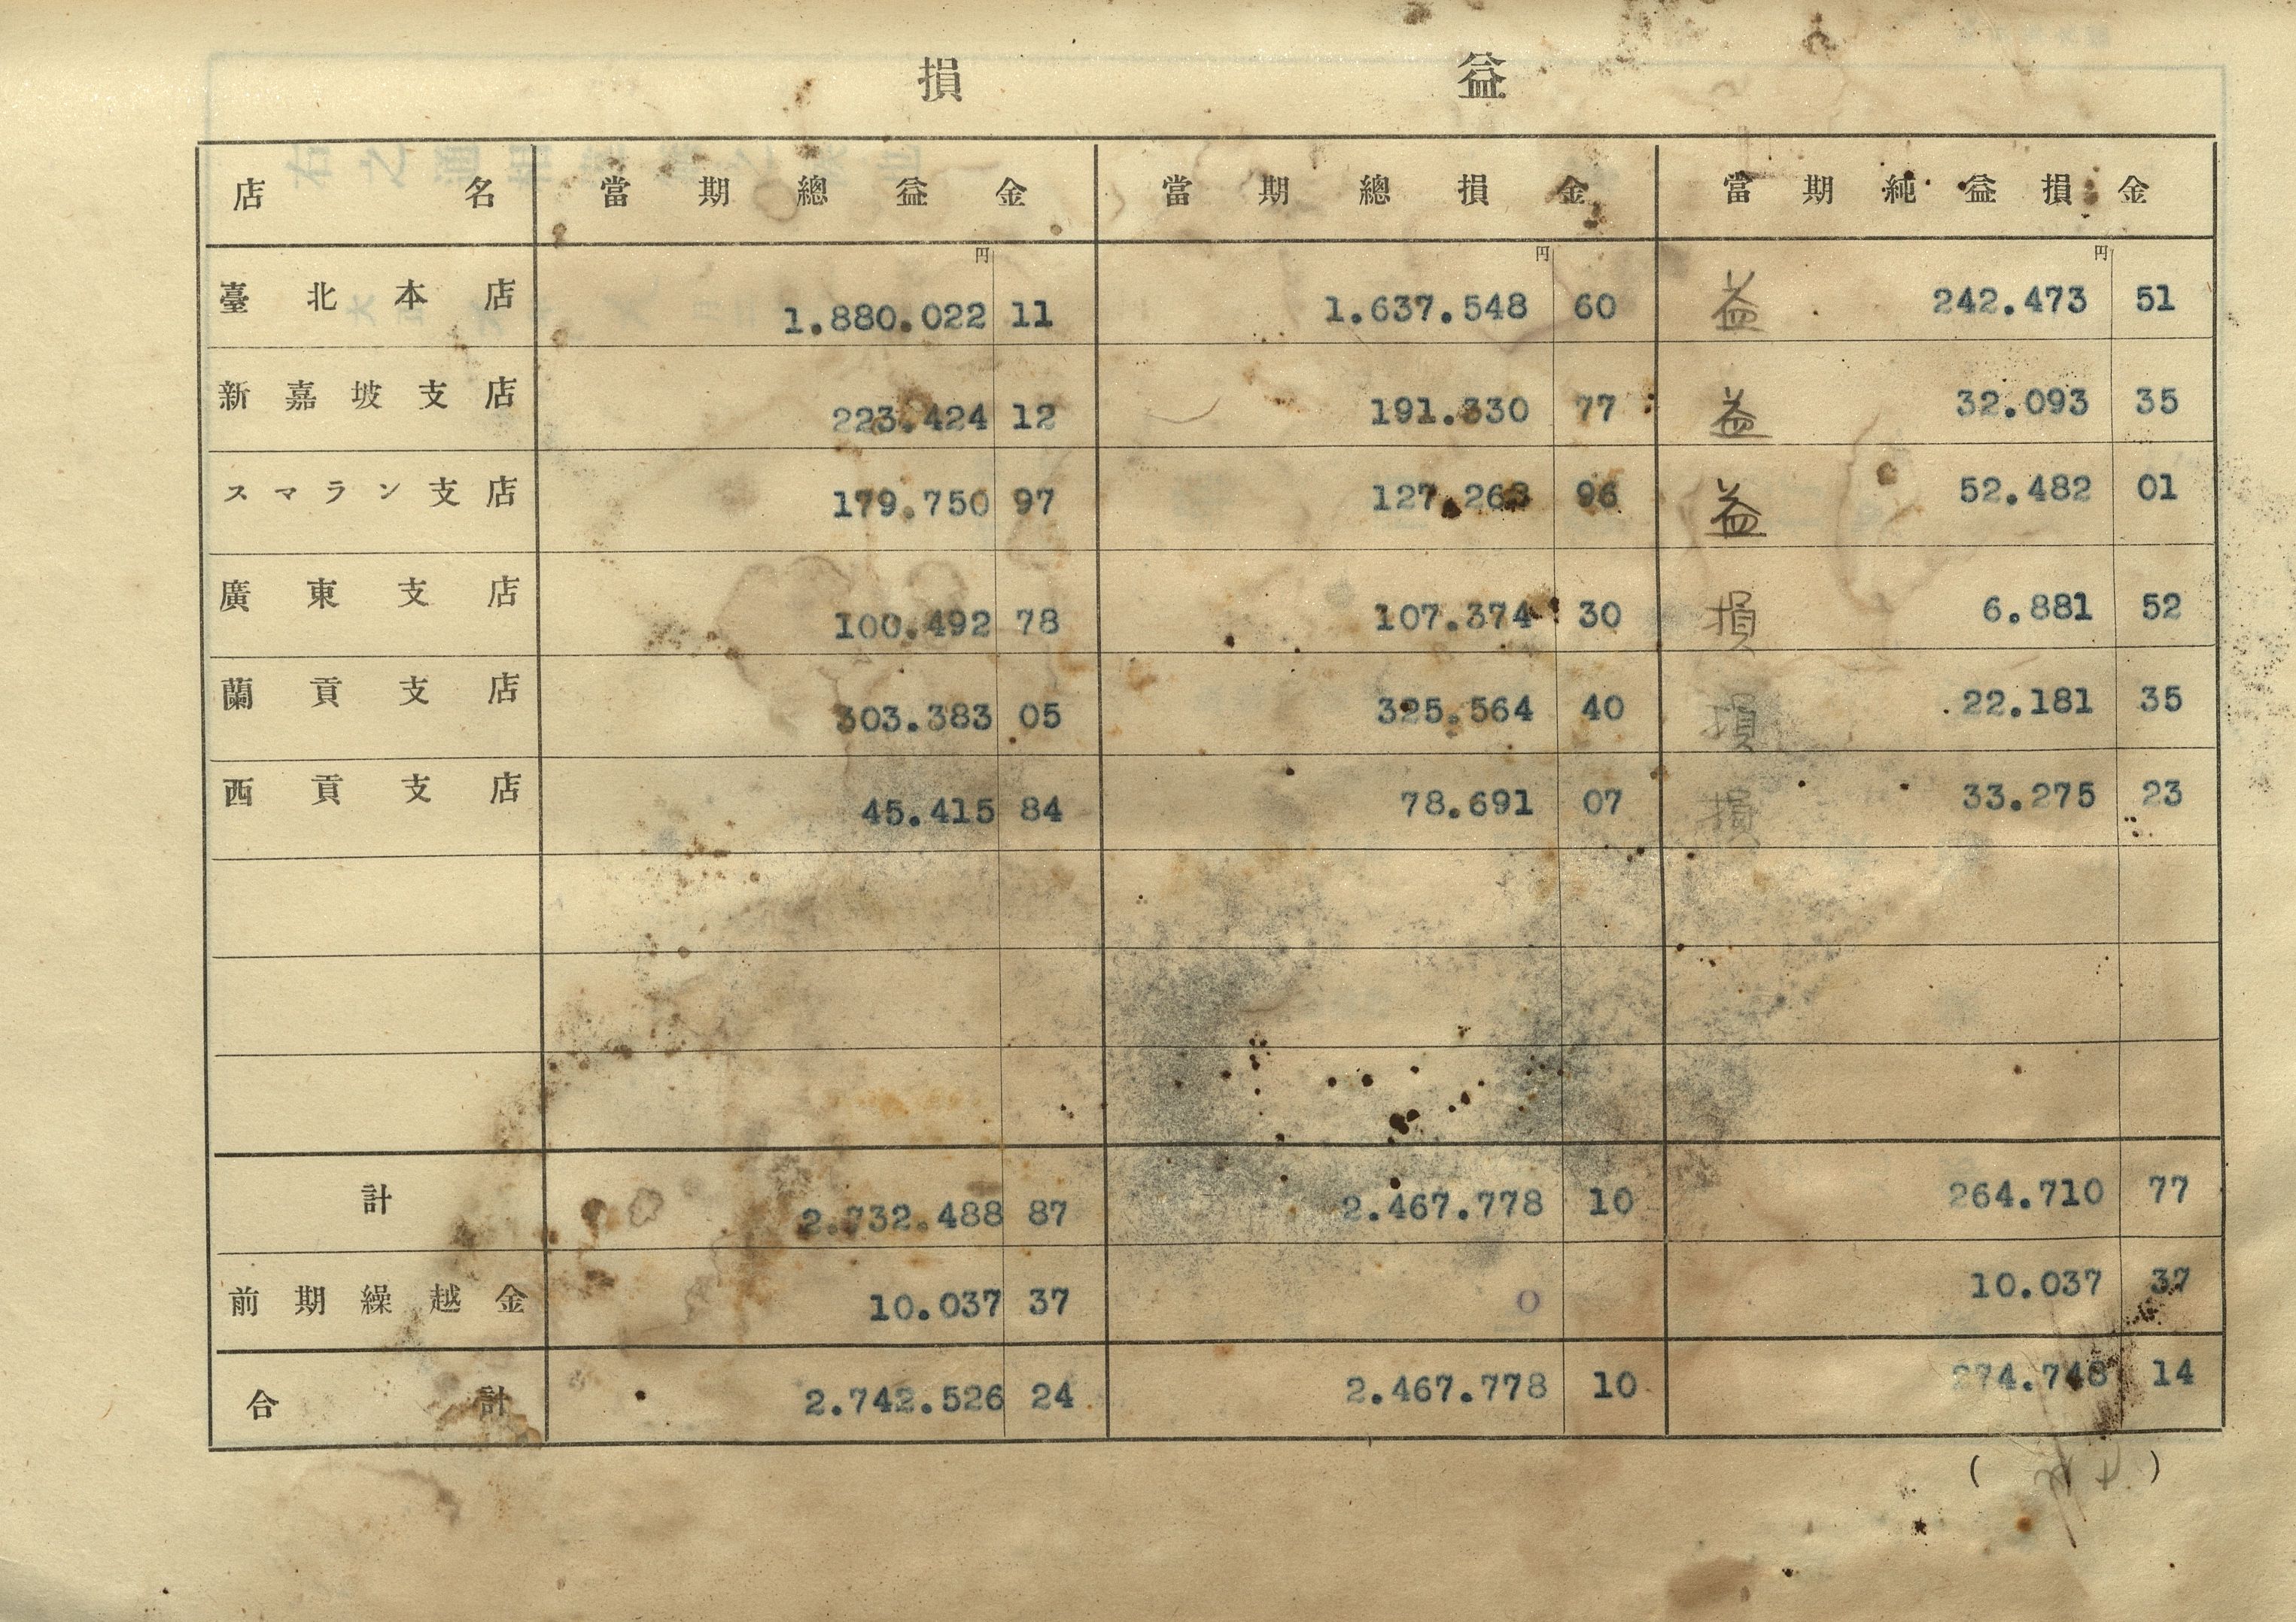 損益
店名 當期總益金 當期總損金 當期純益損金
円 円 円
臺北本店 1.880.022 11 1.637.548 60 益 242.473 51
新嘉坡支店 223.424 12 191.330 77 益 32.093 35
スマラン支店 179.750 97 127.268 96 益 52.482 01
廣東支店 100.492 78 107.374 30 損 6.881 52
蘭貢支店 303.383 05 325.564 40 損 22.181 35
西貢支店 45.415 84 78.691 07 損 33.275 23
計 2.732.488 87 2.467.778 10 264.710 77
前期繰越金 10.037 37 0 10.037 37
合計 2.742.526 24 2.467.778 10 274.748 14
( )